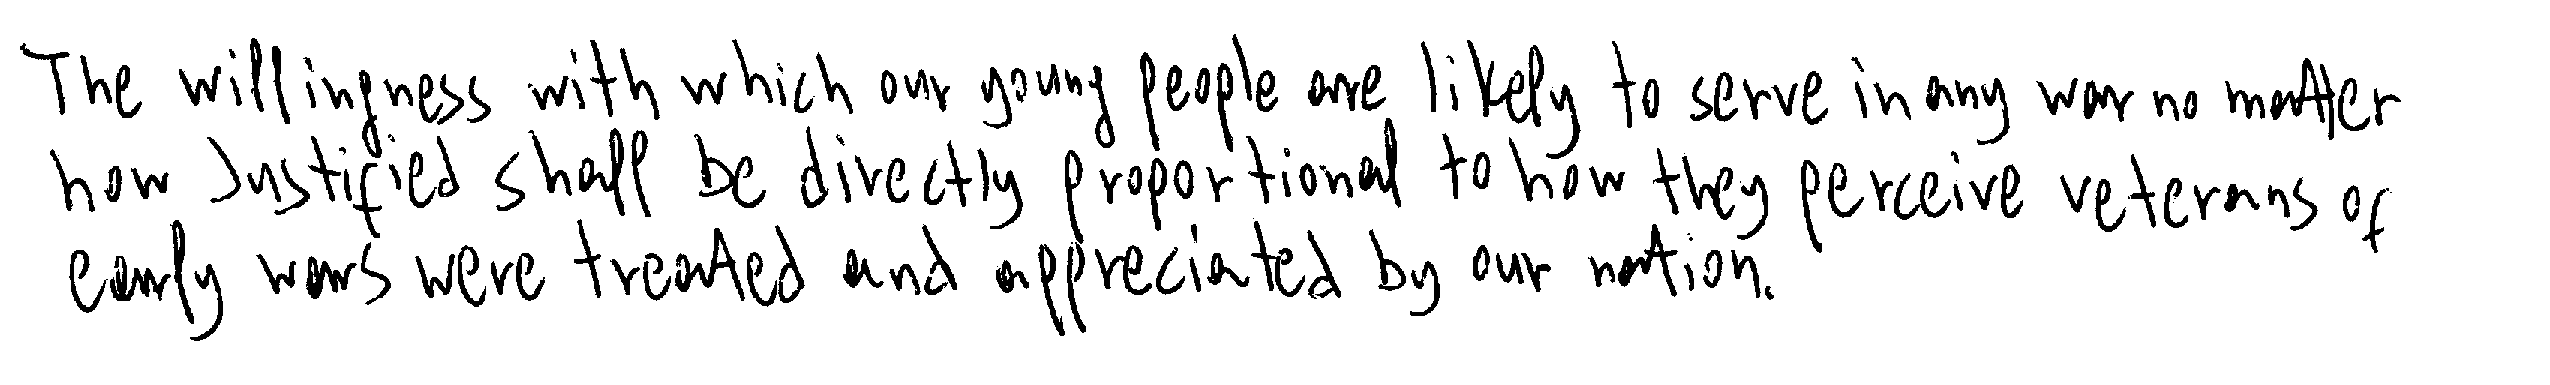 The willingness with which our young people are likely to serve in any war no matter
how Justified shall be directly proportional to how they perceive veterans of
early wars were treated and appreciated by our nation.